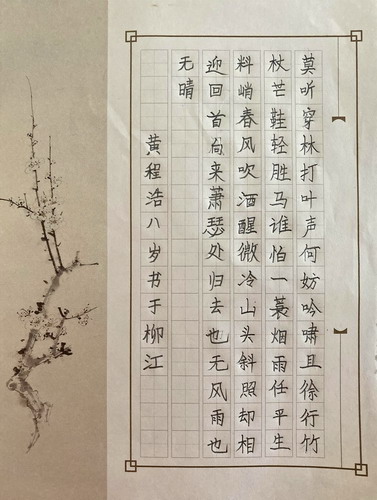 莫听穿林打叶声何妨吟啸且徐行竹
杖芒鞋轻胜马谁怕一蓑烟雨任平生
料峭春风吹酒醒微冷山头斜照却相
迎回首向来萧瑟处归去也无风雨也
无晴
黄程浩八岁书于柳江